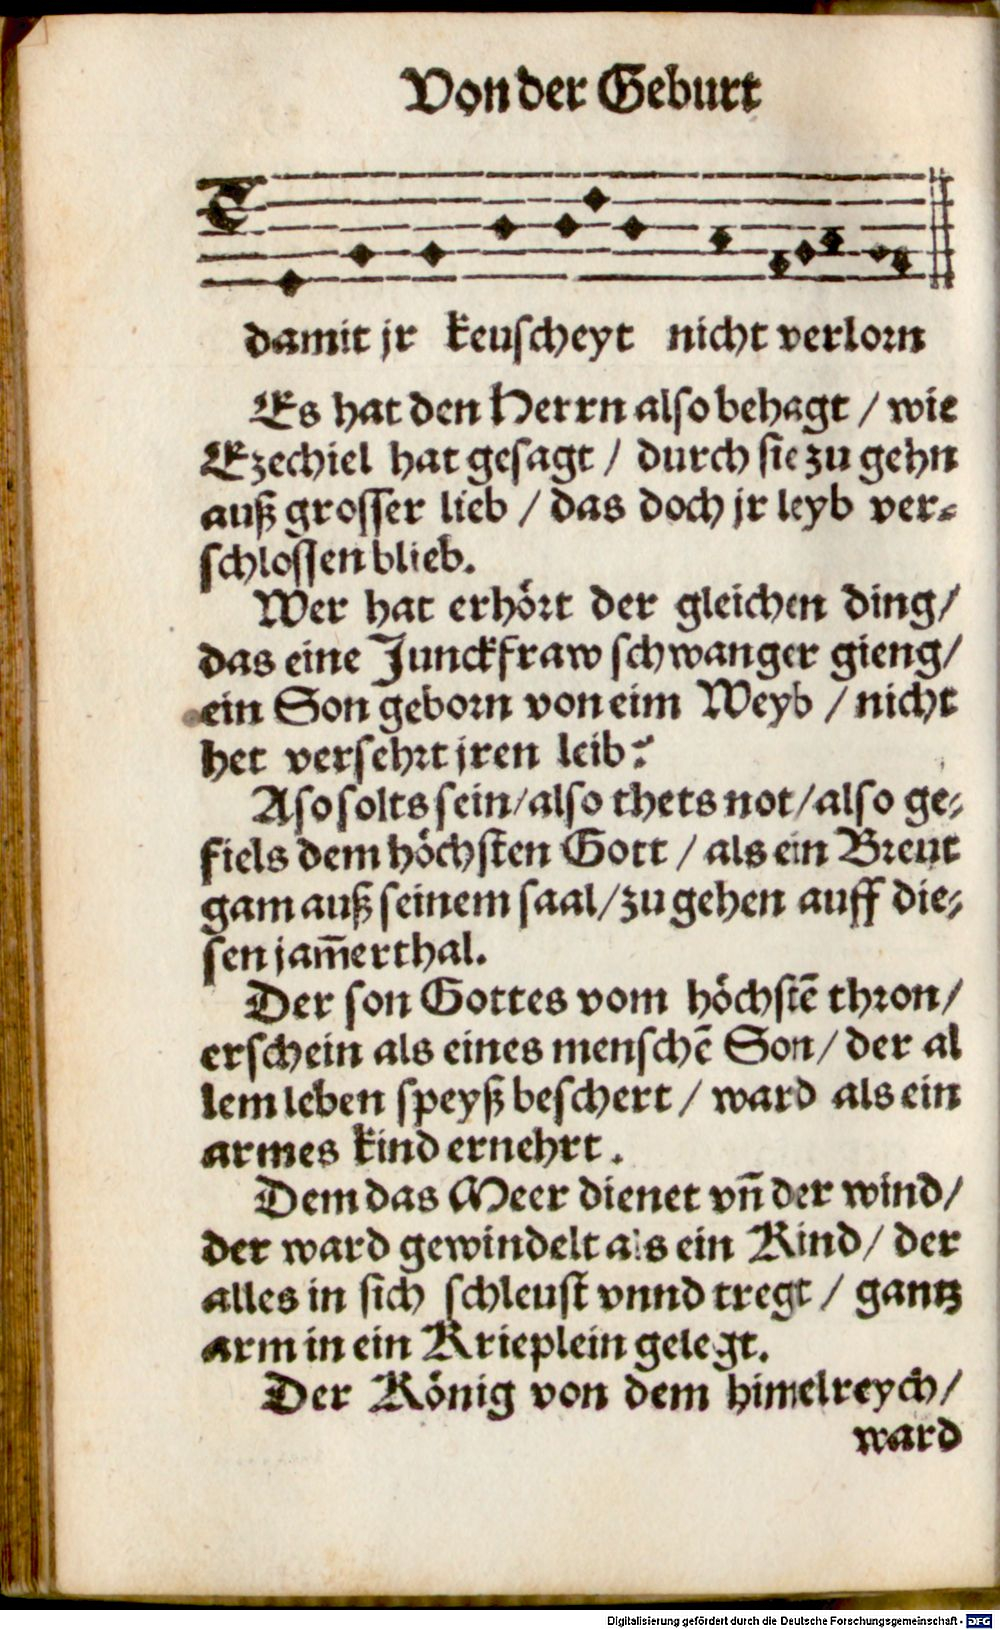 Von der Geburt
damit jr keuscheyt nicht verlorn
Es hat den Herrn also behagt / wie
Ezechiel hat gesagt / durch sie zu gehn
auß grosser lieb / das doch jr leyb ver⸗
schlossen blieb.
Wer hat erhört der gleichen ding /
das eine Junckfraw schwanger gieng /
ein Son geborn von eim Weyb / nicht
het versehrt jren leib?
Aso solts sein / also thets not / also ge⸗
fiels dem höchsten Gott / als ein Breut
gam auß seinem saal / zu gehen auff die⸗
sen jam̄erthal.
Der son Gottes vom höchstē thron /
erschein als eines menschē Son / der al
lem leben speyß beschert / ward als ein
armes kind ernehrt.
Dem das Meer dienet vn̄ der wind /
der ward gewindelt als ein Kind / der
alles in sich schleust vnnd tregt / gantz
arm in ein Krieplein gelegt.
Der König von dem himelreych /
ward
Digitalisierung gefördert durch die Deutsche Forschungsgemeinschaft - DFG